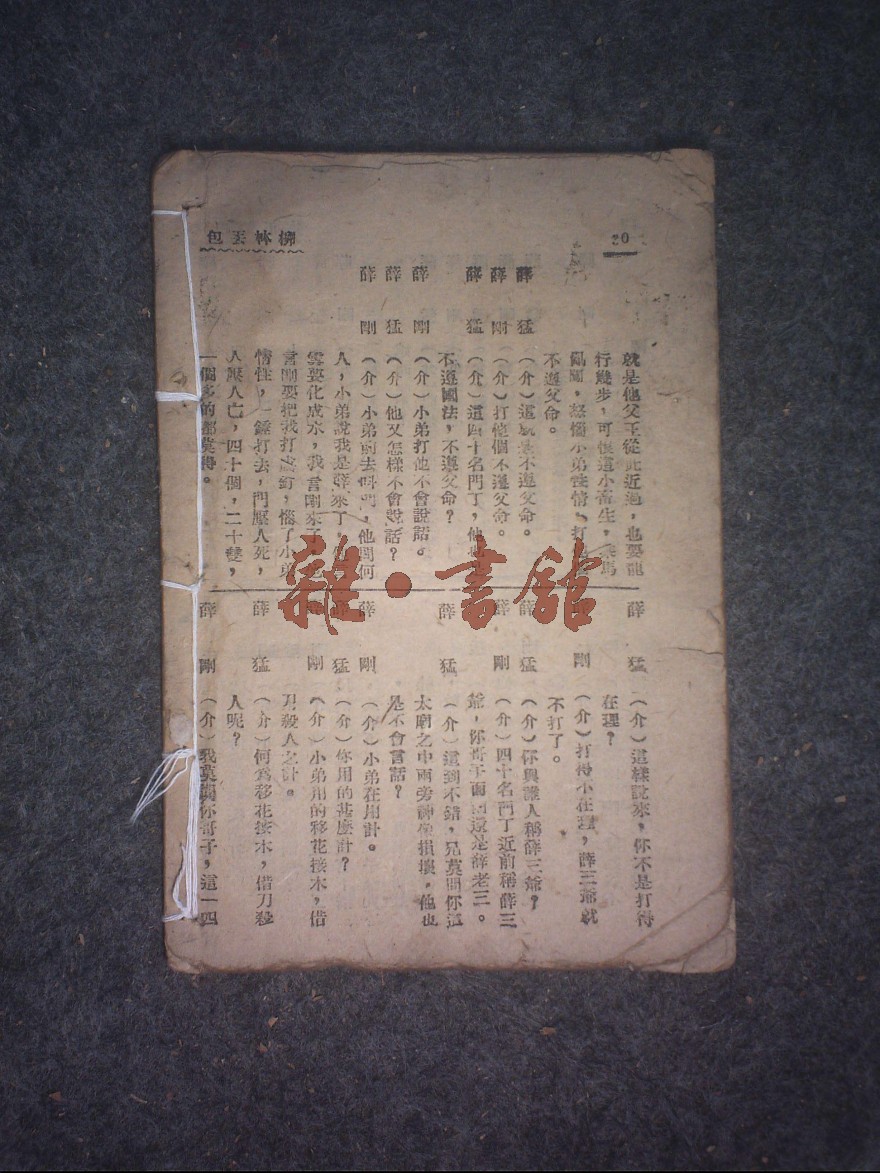 20
柳林丟包
就是他父王從此近過，也要龍
行幾步，可恨這小畜生，乘馬
亂闖，怒惱小弟性情，打
不遵父命。
薛猛（介）這就是不遵父命。
薛剛（介）打他個不遵父命。
薛猛（介）這四十名門丁，他也
不遵國法，不遵父命？
薛剛（介）小弟打他不會說話。
薛猛（介）他又怎樣不會說話？
薛剛（介）小弟前去叫門，他問何
人，小弟說我是薛來了，
雲要化成水，我言剛來了，他
言剛要把我打成釘，惱了小弟
情性，一錘打去，門壓人死，
人壓人亡，四十個，二十雙，
一個多的都莫得。
薛猛（介）這樣說來，你不是打得
在理？
剛（介）打得不在理，薛三爺就
不打了。
薛猛（介）你與誰人稱薛三爺？
薛剛（介）四十名門丁近前稱薛三
爺，你哥子面前還是薛老三。
薛猛（介）這到不錯，兄莫問你這
太廟之中兩旁神像損壞，他也
是不會言話？
薛剛（介）小弟在用計。
薛猛（介）你用的甚麼計？
薛剛（介）小弟用的移花接木，借
刀殺人之計。
薛猛（介）何為移花接木，借刀殺
人呢？
薛剛（介）我莫與你哥子，這一四
雜·書館